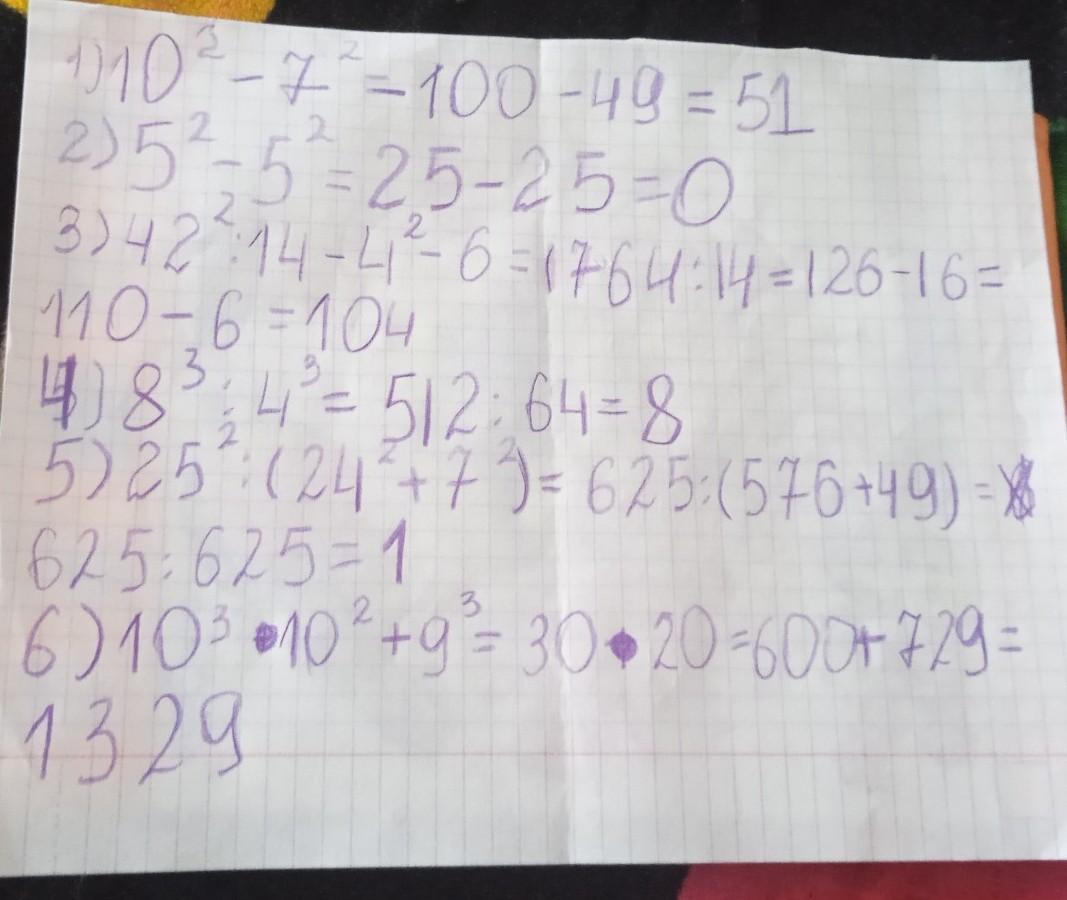 1) 10² - 7² = 100 - 49 = 51
2) 5² - 5² = 25 - 25 = 0
3) 42² : 14 - 4² - 6 = 1764 : 14 = 126 - 16 =
110 - 6 = 104
4) 8³ : 4³ = 512 : 64 = 8
5) 25² : (24² + 7²) = 625 : (576 + 49) =
625 : 625 = 1
6) 10³ • 10² + 9³ = 30 • 20 = 600 + 729 =
1329